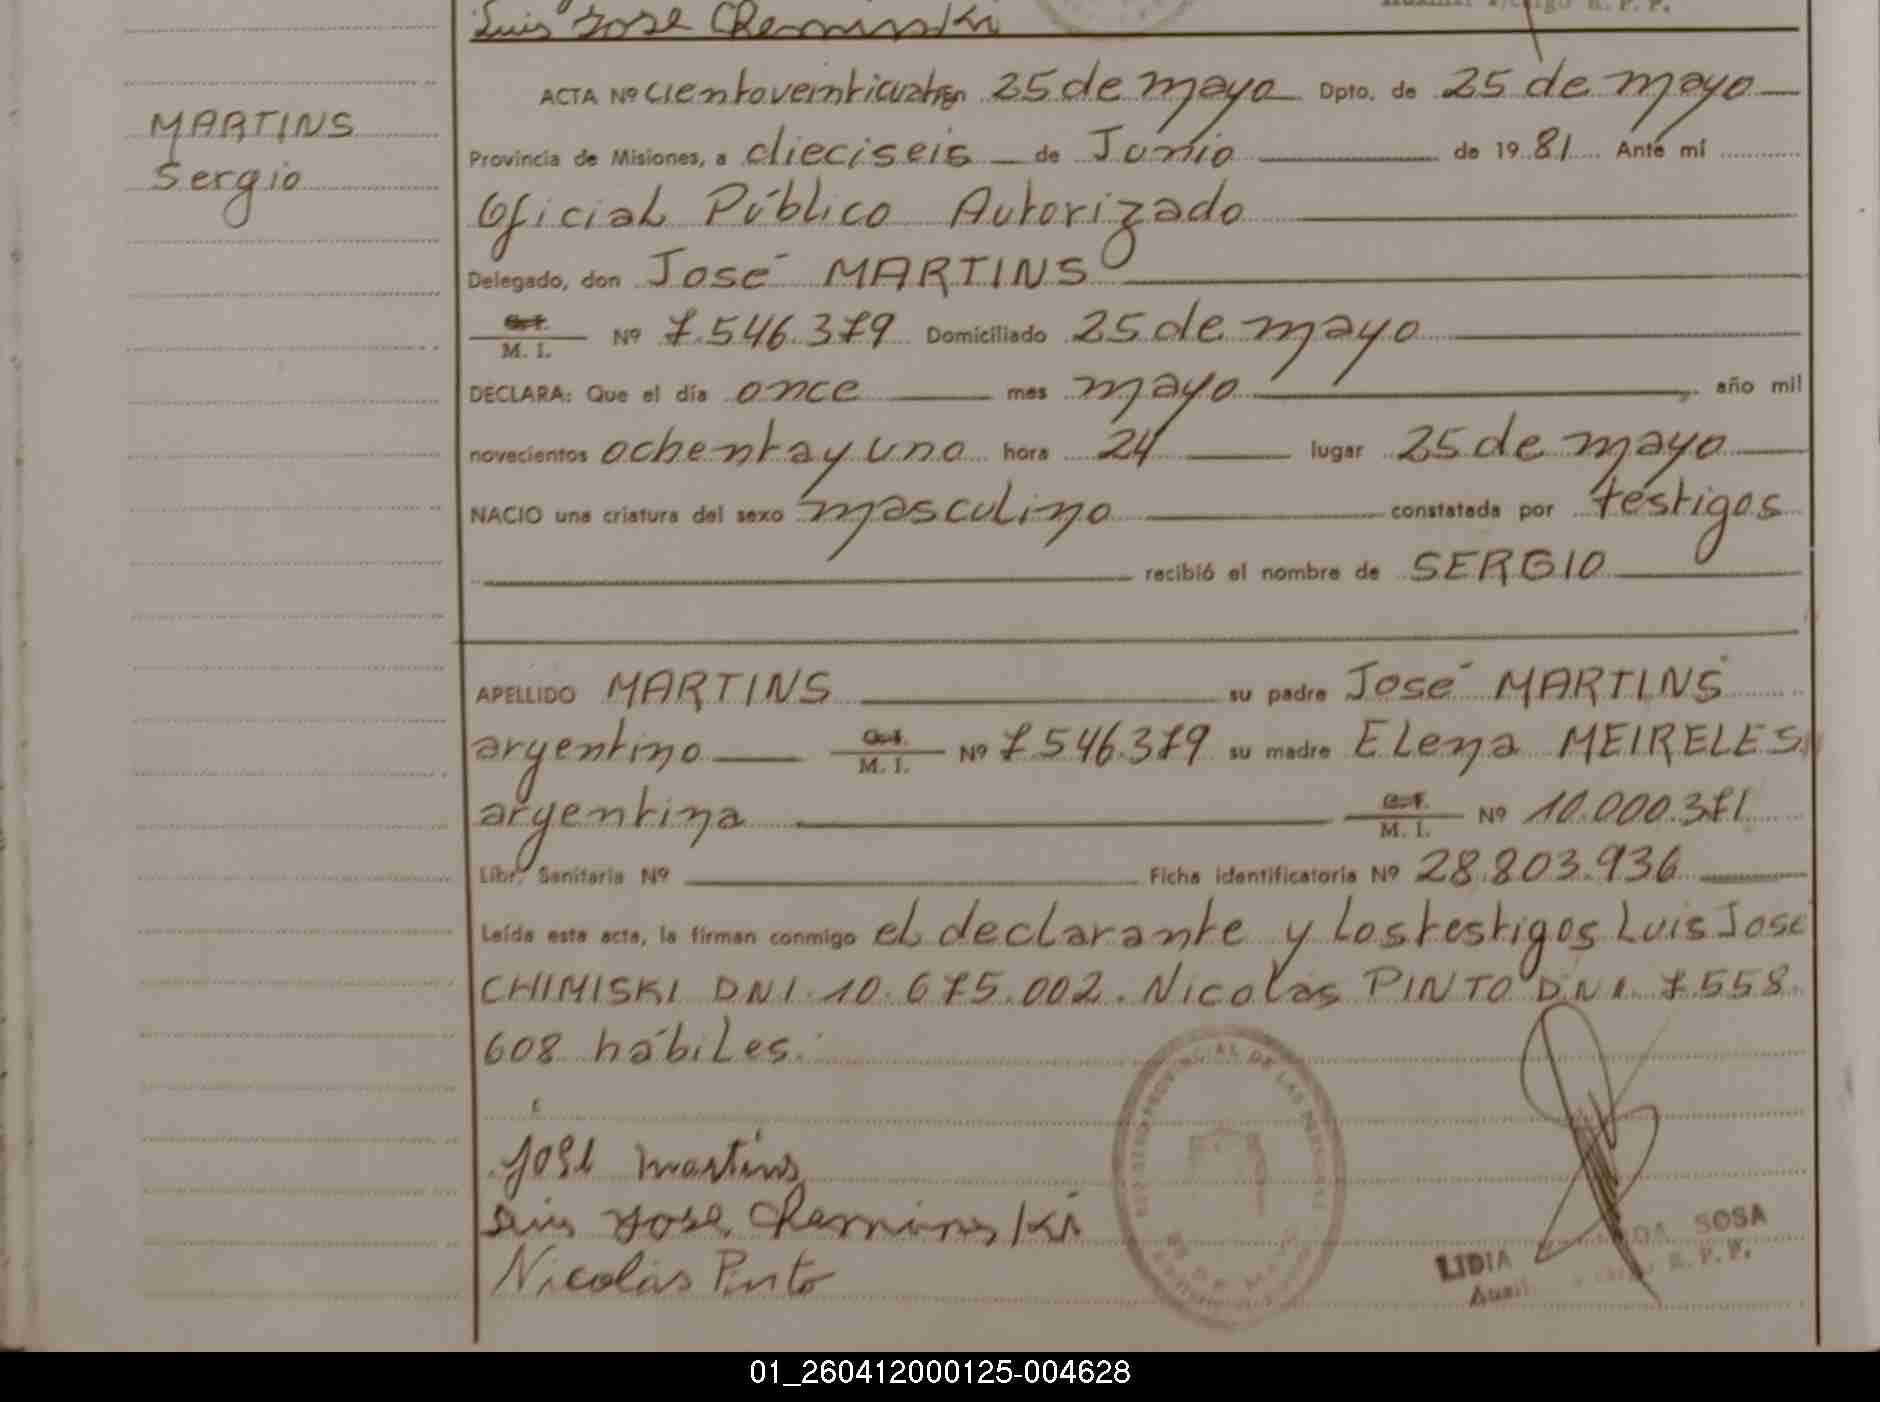 Luis Jose Cheminski
MARTINS
Sergio
ACTA Nº cientoveinticuatro En 25 de mayo Dpto. de 25 de mayo
Provincia de Misiones, a dieciseis de Junio de 19 81 Ante mí
Oficial Público Autorizado
Delegado, don José MARTINS
C.I. M. I. Nº 7.546.379 Domiciliado 25 de mayo
DECLARA: Que el día once mes mayo, año mil
novecientos ochenta y uno hora 24 lugar 25 de mayo
NACIO una criatura del sexo masculino constatada por testigos
recibió el nombre de SERGIO
APELLIDO MARTINS su padre José MARTINS
argentino C.I. M. I. Nº 7.546.379 su madre Elena MEIRELES
argentina C.I. M. I. Nº 10.000.371
Libr. Sanitaria Nº Ficha identificatoria Nº 28.803.936
Leída esta acta, la firman conmigo el declarante y los testigos Luis José
CHIMISKI DNI. 10.675.002. Nicolás PINTO DNI. 7.558
608 hábiles.
José Martins
Luis Jose Cheminski
Nicolás Pinto
LIDIA SOSA
R. P. P.
01_260412000125-004628